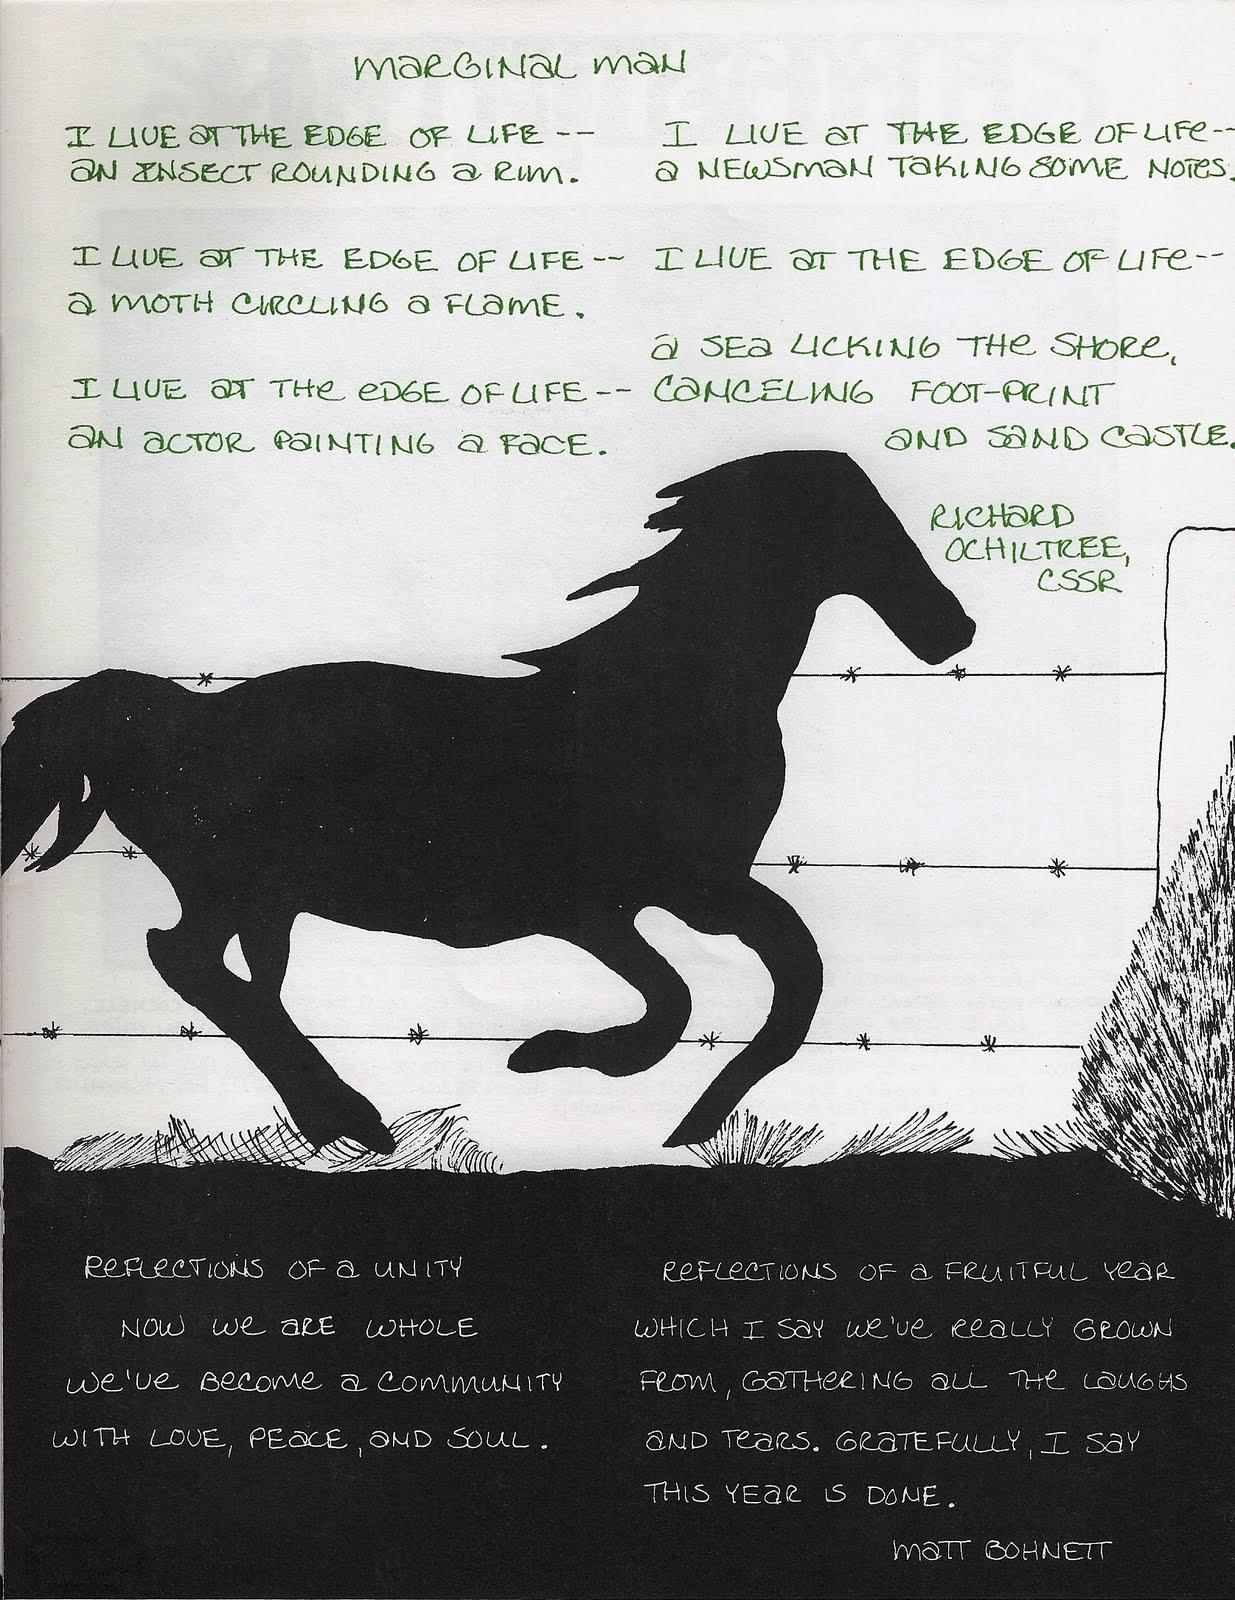 MARGINAL MAN
I LIVE AT THE EDGE OF LIFE --
AN INSECT ROUNDING A RIM.
I LIVE AT THE EDGE OF LIFE --
A MOTH CIRCLING A FLAME.
I LIVE AT THE EDGE OF LIFE --
AN ACTOR PAINTING A FACE.
I LIVE AT THE EDGE OF LIFE --
A NEWSMAN TAKING SOME NOTES.
I LIVE AT THE EDGE OF LIFE --
A SEA LICKING THE SHORE,
CANCELING FOOT-PRINT
AND SAND CASTLE.
RICHARD
OCHILTREE,
CSSR
REFLECTIONS OF A UNITY
NOW WE ARE WHOLE
WE'VE BECOME A COMMUNITY
WITH LOVE, PEACE, AND SOUL.
REFLECTIONS OF A FRUITFUL YEAR
WHICH I SAY WE'VE REALLY GROWN
FROM, GATHERING ALL THE LAUGHS
AND TEARS. GRATEFULLY, I SAY
THIS YEAR IS DONE.
MATT BOHNETT